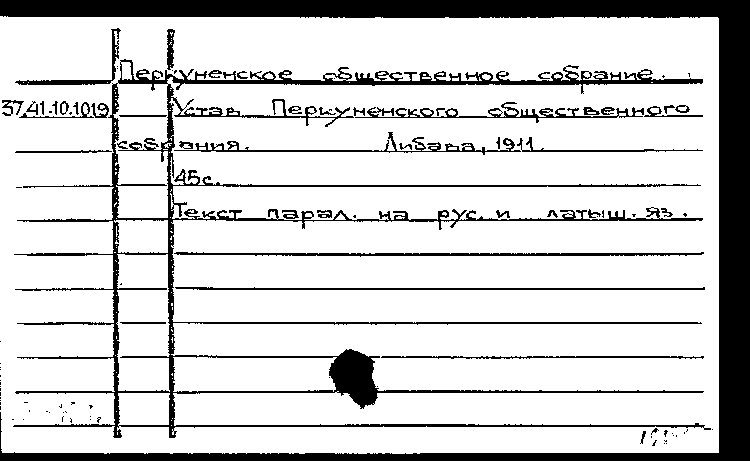 Перкуненское общественное собрание.
37.41.10.1019 Устав Перкуненского общественного
собрания. Либава, 1911.
45с.
Текст парал. на рус. и латыш. яз.